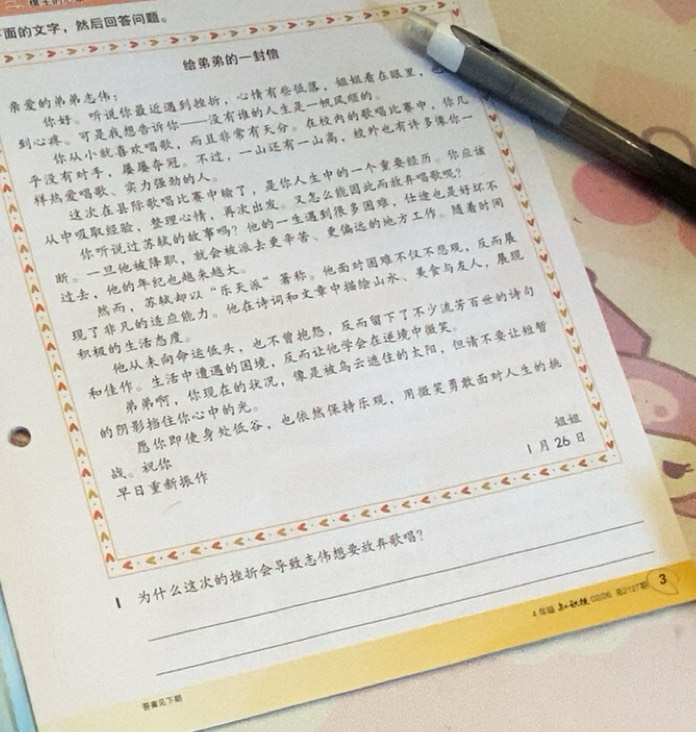 面的文字，然后回答问题。
给弟弟的一封信
亲爱的弟弟志伟：
你好。听说你最近遇到挫折，心情有些低落，姐姐看在眼里，
到心疼。可是我想告诉你——没有谁的人生是一帆风顺的。
你从小就喜欢唱歌，而且非常有天分。在校内的歌唱比赛中，你几
乎没有对手，屡屡夺冠。不过，一山还有一山高，校外也有许多像你一
样热爱唱歌、实力强劲的人。
这次在县际歌唱比赛中输了，是你人生中的一个重要经历。你应该
从中吸取经验，整理心情，再次出发。又怎么能因此而放弃唱歌呢？
你听说过苏轼的故事吗？他的一生遇到很多困难，仕途也是好坏不
断。一旦他被降职，就会被派去更辛苦、更偏远的地方工作。随着时间
过去，他的年纪也越来越大。
然而，苏轼却以“乐天派”著称。他面对困难不仅不悲观，反而展
现了非凡的适应能力。他在诗词和文章中描绘山水、美食与友人，展现
积极的生活态度。
他从未向命运低头，也不曾抱怨，反而留下了不少流芳百世的诗句
和佳作。生活中遭遇的困境，反而让他学会在逆境中微笑。
弟弟啊，你现在的状况，像是被乌云遮住的太阳，但请不要让短暂
的阴影挡住你心中的光。
愿你即使身处低谷，也依然保持乐观，用微笑勇敢面对人生的挑
战。祝你
早日重新振作
姐姐
1 月 26 日
1 为什么这次的挫折会导致志伟想要放弃歌唱？
4 年级 知识报 02/26 第2127期 3
答案见下期